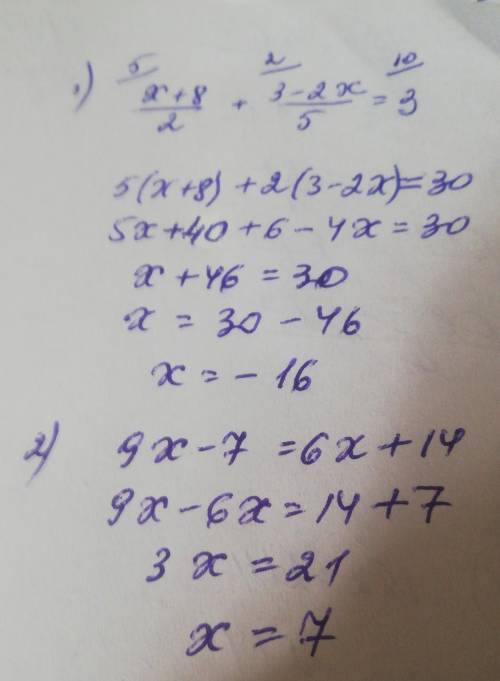 1) 5/ x+8/2 + 2/ 3-2x/5 = 10/ 3
5(x+8)+2(3-2x)=30
5x+40+6-4x=30
x+46=30
x=30-46
x=-16
2) 9x-7=6x+14
9x-6x=14+7
3x=21
x=7